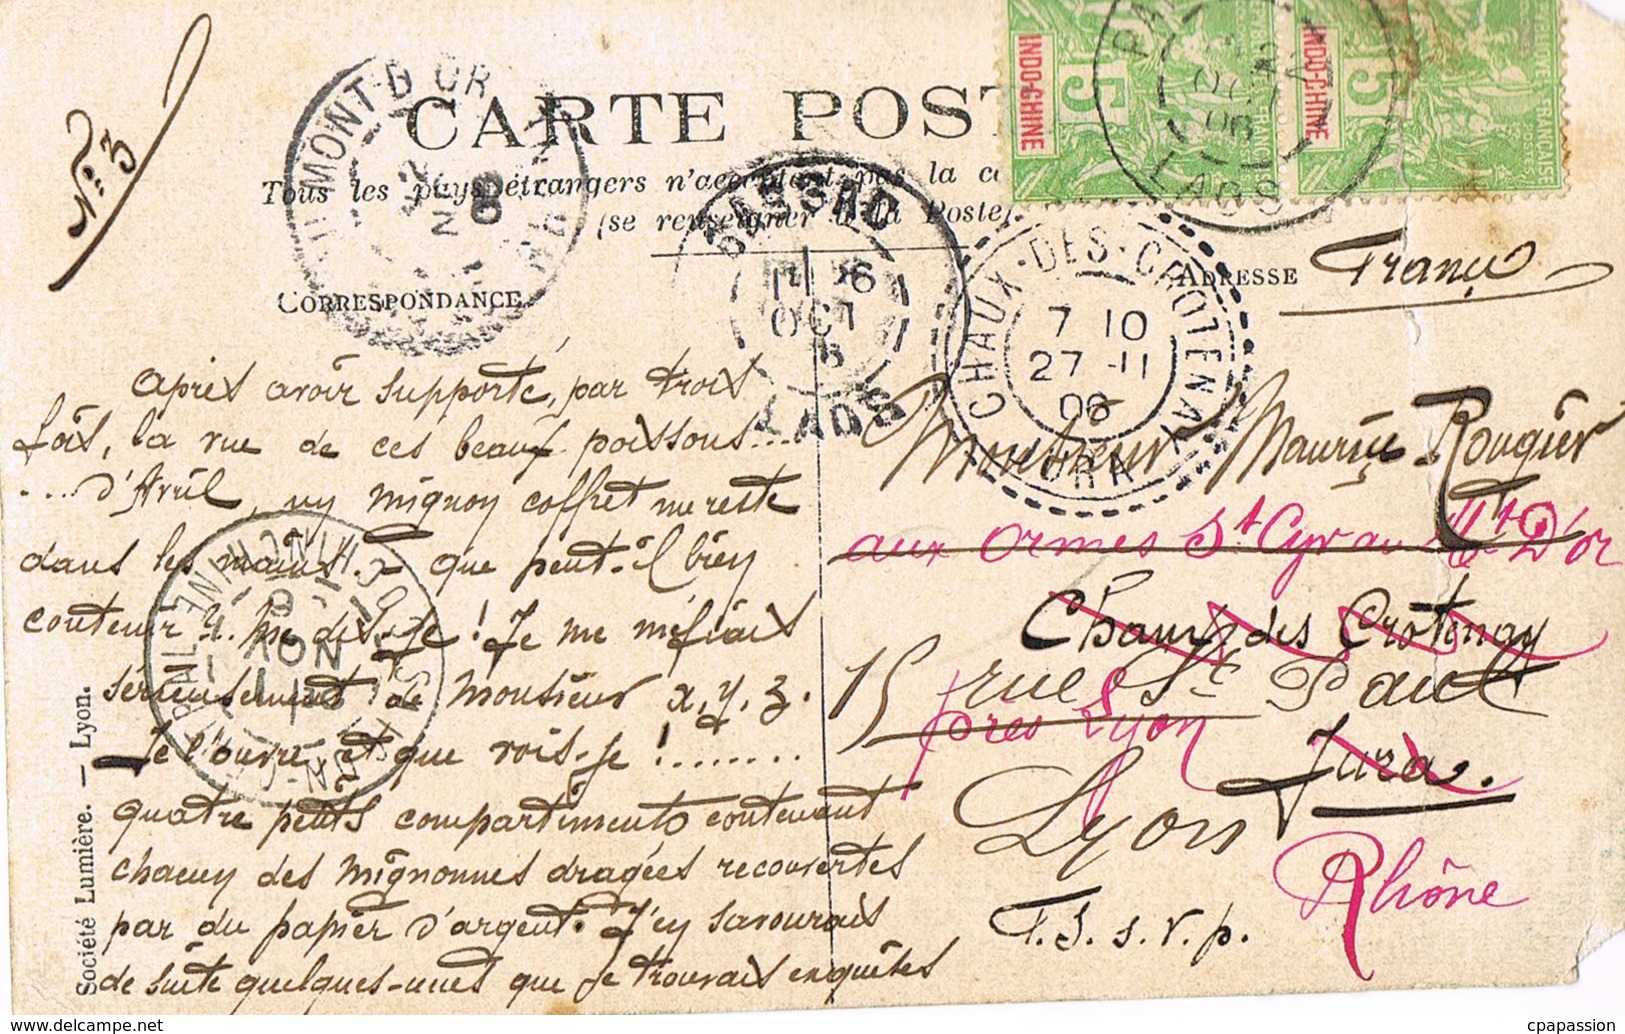 N° 3
CARTE POST
Tous les pays étrangers n'acceptent pas la c
(se renseigner à la Poste)
INDO-CHINE
5
INDO-CHINE
5
LAOS
MONT-D'OR
BASSAC
OCT
LAOS
CHAUX-DES-CROTENAY
7 10
27 -11
06
JURA
CORRESPONDANCE
ADRESSE
France
Après avoir supporté, par trois
fois, la vue de ces beaux poissons....
.... d'Avril, un mignon coffret me reste
dans les mains. - que peut-il bien
contenir ?. me dis-je ! Je me méfiais
sérieusement de monsieur x, y, z.
Je l'ouvre et que vois-je !.......
quatre petits compartiments contenant
chacun des mignonnes dragées recouvertes
par du papier d'argent. J'en savourais
de suite quelques-unes que je trouvais exquises
Monsieur Maurice Rougier
aux Ormes St Cyr au Mt D'or
Chaux des Crotenay
15 rue St Paul
près Lyon
Jura.
Lyon
Rhône
T.S.s.v.p.
Société Lumière. — Lyon.
http://www.delcampe.net
cpapassion